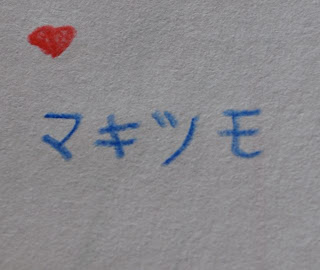 マキツモ